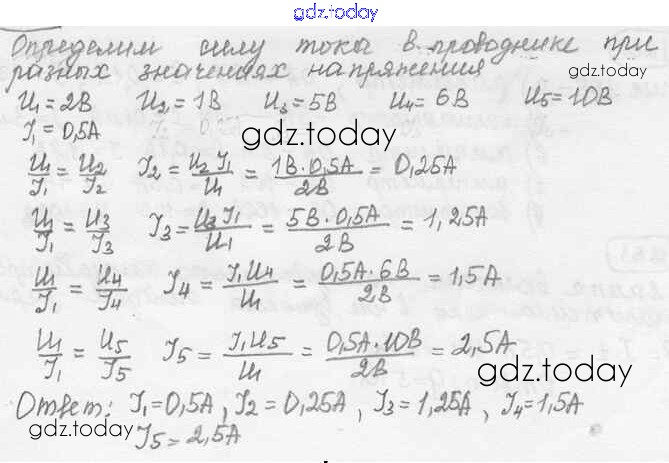 gdz.today
Определим силу тока в проводнике при
разных значениях напряжения
gdz.today
U₁ = 2В U₂ = 1В U₃ = 5В U₄ = 6В U₅ = 10В
I₁ = 0,5А
gdz.today
U₁/I₁ = U₂/I₂ I₂ = U₂ I₁/U₁ = 1В·0,5А/2В = 0,25А
U₁/I₁ = U₃/I₃ I₃ = U₃ I₁/U₁ = 5В·0,5А/2В = 1,25А
U₁/I₁ = U₄/I₄ I₄ = I₁U₄/U₁ = 0,5А·6В/2В = 1,5А
U₁/I₁ = U₅/I₅ I₅ = I₁U₅/U₁ = 0,5А·10В/2В = 2,5А
gdz.today
Ответ: I₁ = 0,5А, I₂ = 0,25А, I₃ = 1,25А, I₄ = 1,5А
gdz.today
I₅ = 2,5А